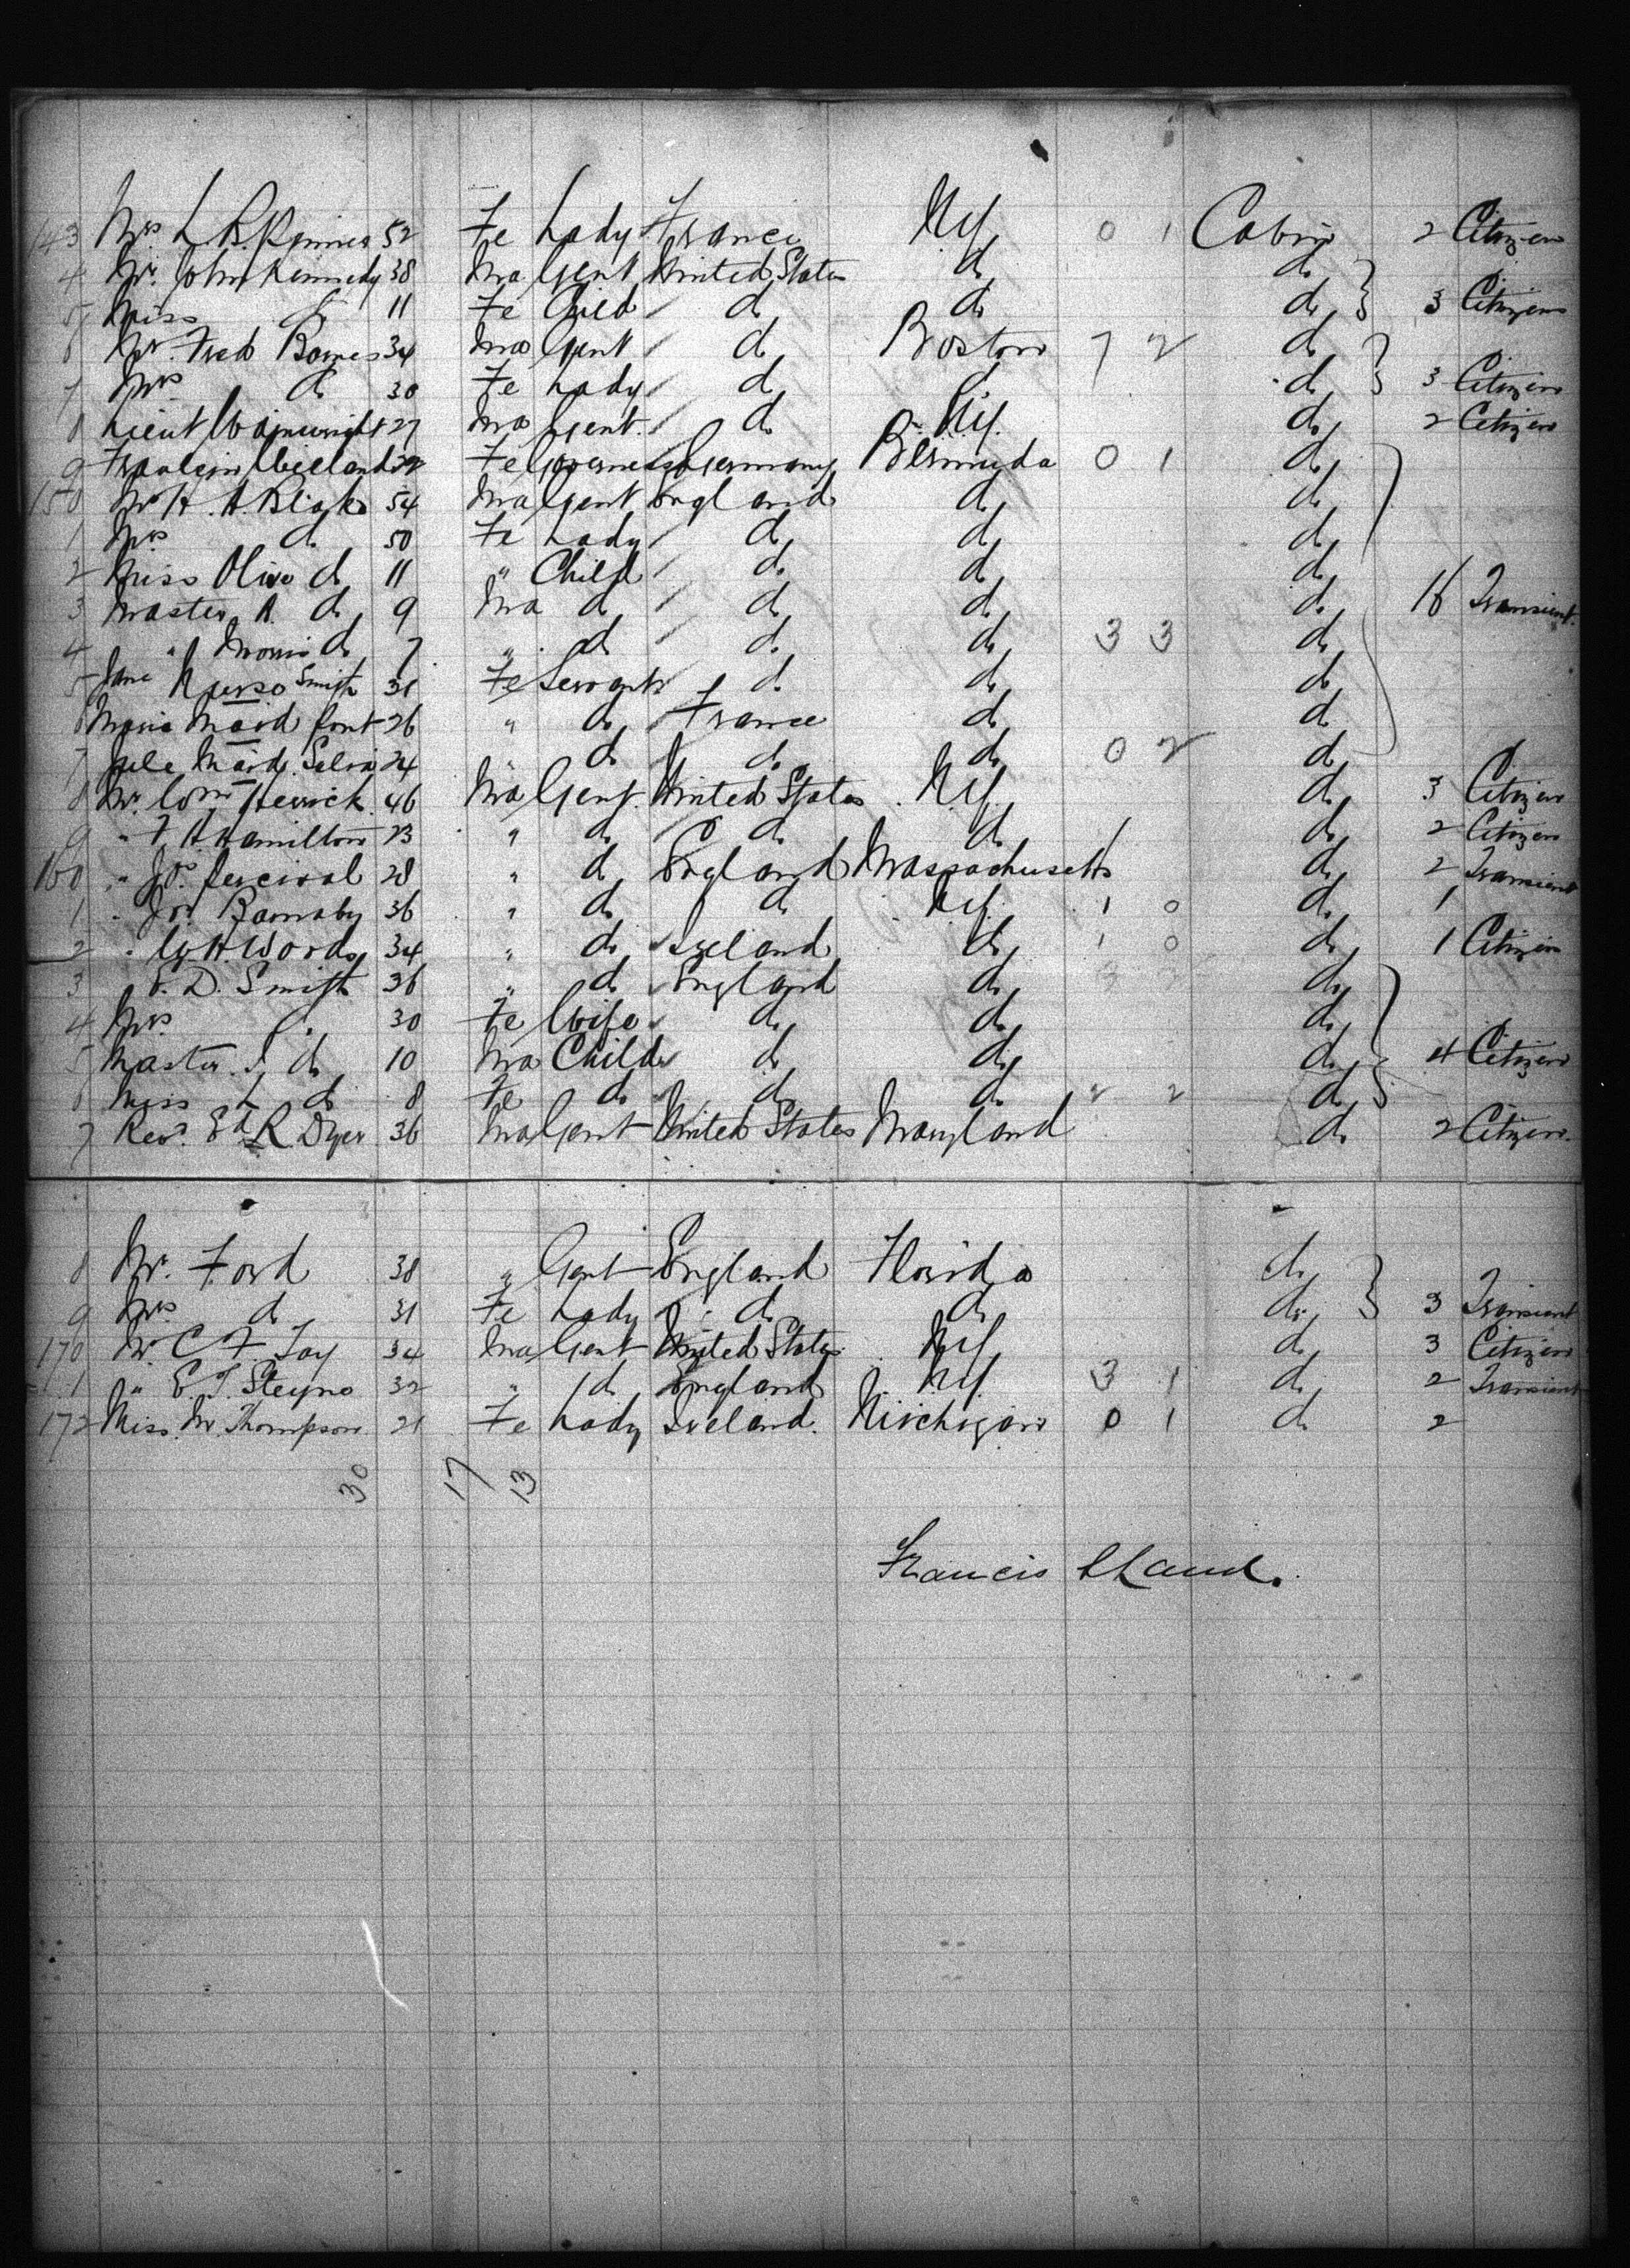 143 Mrs L. B. 52 Fe Lady France N.Y. 0 1 Cabin 2 Citizen
4 Mr. John Kennedy 38 Ma Gent United States do do
5 Miss do 11 Fe Child do do do 3 Citizens
6 Mr. Fred Barnes 34 Ma Gent do Boston 7 2 do
7 Mrs do 30 Fe Lady do do do 3 Citizen
8 Lieut Wainwright 27 Ma Gent. do N.Y. do 2 Citizen
9 Fraulein 22 Fe Governess Germany Bermuda 0 1 do
150 Mr H. A. Blake 54 Ma Gent England do do
1 Mrs do 50 Fe Lady do do do
2 Miss Olive do 11 " Child do do do
3 Master A. do 9 Ma do do do do 16 Transient.
4 " Morris do 7 " do do do 3 3 do
5 Jane Nurse Smith 31 Fe Servant do do do
6 Marie Maid 26 " do France do do
7 Maid 24 " do do do 0 2 do
8 Mr. Wm Herrick 46 Ma Gent. United States N.Y. do 3 Citizen
9 " F. H. Hamilton 23 " do do do do 2 Citizen
160 " Jos. Percival 28 " do England Massachusetts do 2 Transient
1 " Jos Barnaby 36 " do do N.Y. 1 0 do 1
2 " W. H. Woods 34 " do Ireland do 1 0 do 1 Citizen
3 E. D. Smith 36 " do England do do
4 Mrs do 30 Fe Wife do do do
5 Master S. do 10 Ma Child do do do 4 Citizen
6 Miss L do 8 Fe do do do 2 2 do
7 Revd. Ed R. Dyer 36 Ma Gent United States Maryland do 2 Citizen.
8 Mr. Ford 38 " Gent England Florida do
9 Mrs do 31 Fe Lady do do do 3 Transient
170 Mr C F Jay 34 Ma Gent United States N.Y. do 3 Citizen
1 " E. T. Steyne 32 " do England N.Y. 3 1 do 2 Transient
172 Miss M. Thompson 21 Fe Lady Ireland. Michigan 0 1 do 2
30 17 13
Francis